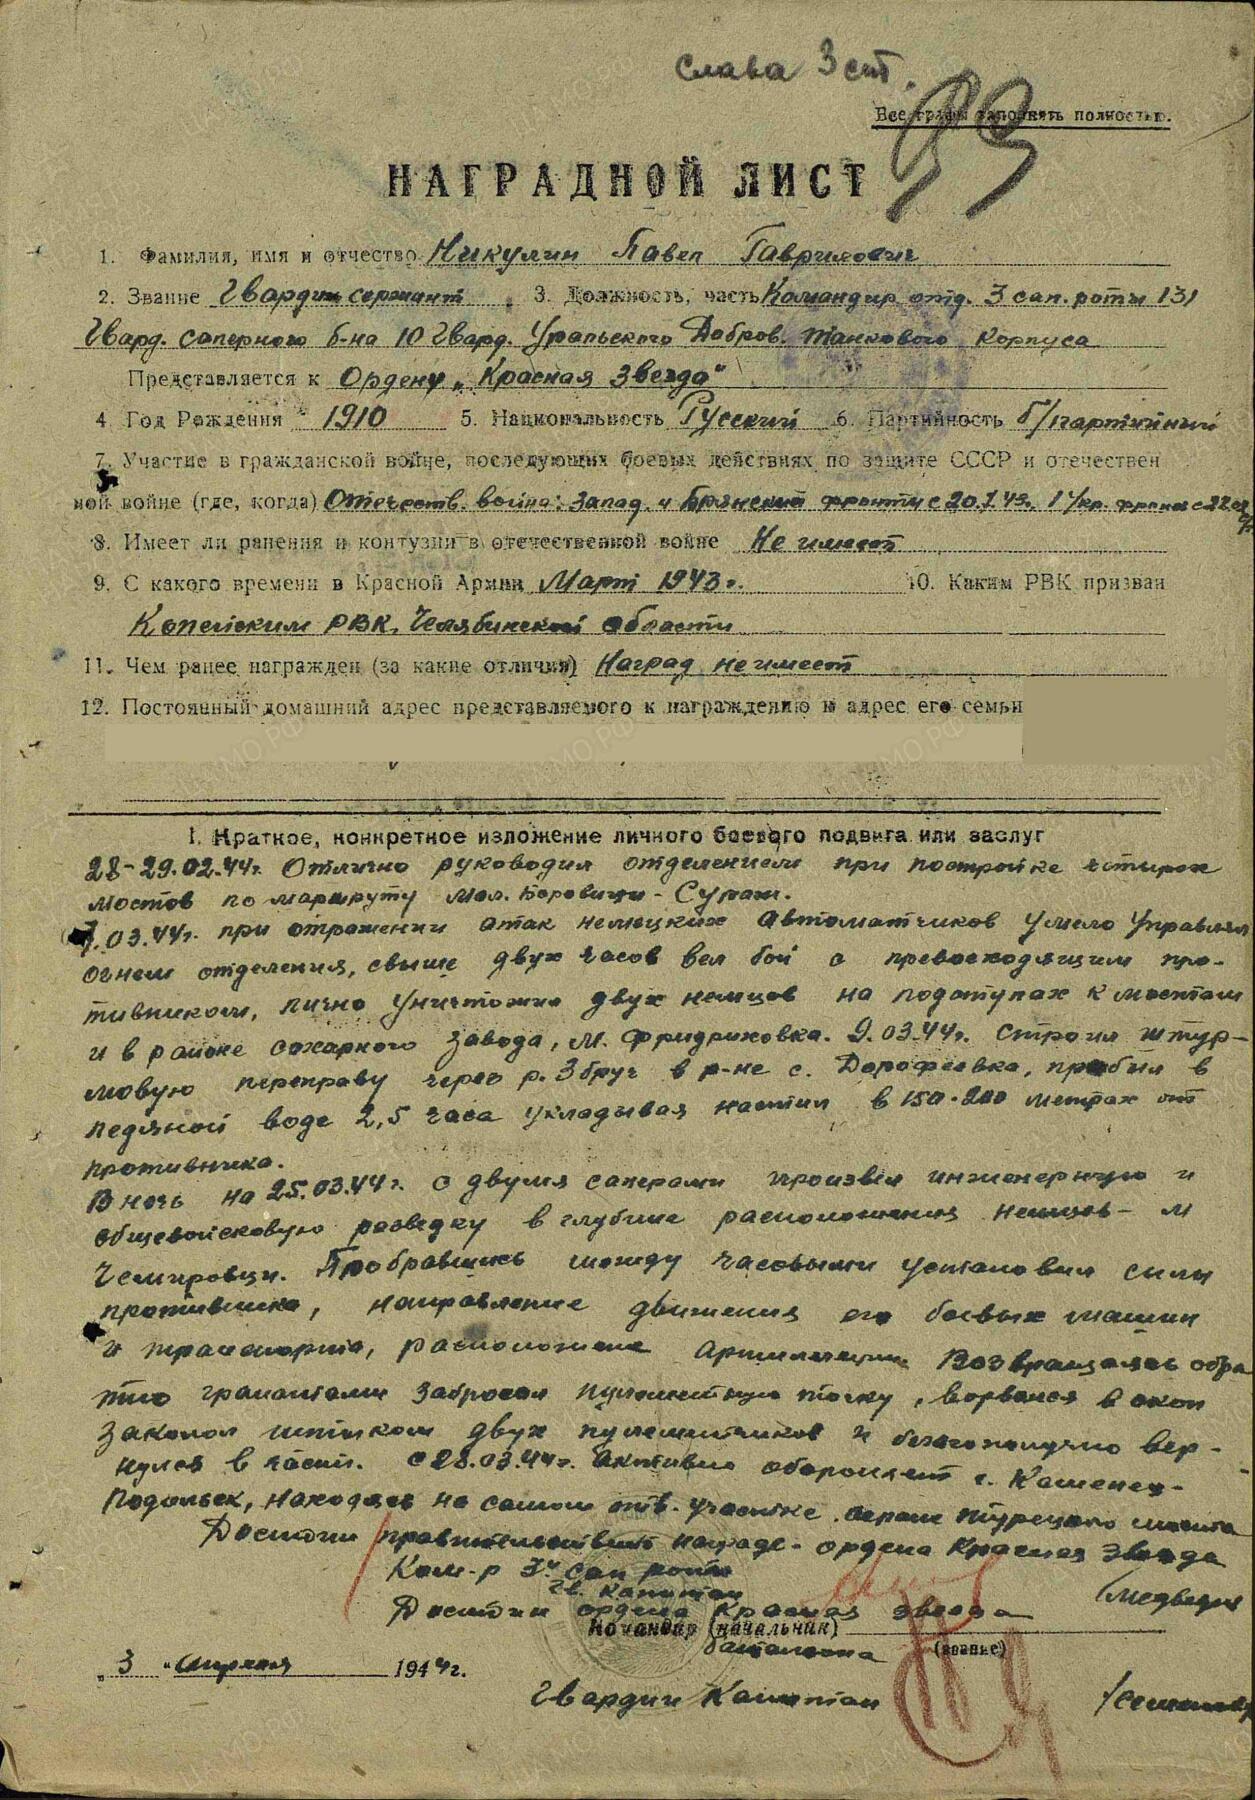 Слава 3 ст.
Все графы заполнять полностью.
НАГРАДНОЙ ЛИСТ
1. Фамилия, имя и отчество Никулин Павел Гаврилович
2. Звание Гвардии сержант 3. Должность, часть Командир отд. 3 сап. роты 131
Гвард. саперного б-на 10 Гвард. Уральского Добров. танкового корпуса
Представляется к Ордену „Красная Звезда"
4. Год Рождения 1910 5. Национальность Русский 6. Партийность б/партийный
7. Участие в гражданской войне, последующих боевых действиях по защите СССР и отечествен
ной войне (где, когда) Отечеств. война: Запад. и Брянский фронты с 20.7.43г. 1 Укр. фронт с
8. Имеет ли ранения и контузии в отечественной войне Не имеет
9. С какого времени в Красной Армии Март 1943 г. 10. Каким РВК призван
Копейским РВК, Челябинской области
11. Чем ранее награжден (за какие отличия) Наград не имеет
12. Постоянный домашний адрес представляемого к награждению и адрес его семьи
I. Краткое, конкретное изложение личного боевого подвига или заслуг
28-29.02.44г. Отлично руководил отделением при постройке четырех
мостов по маршруту Мал. Боровицы - Сураж.
7.03.44г. при отражении атак немецких автоматчиков умело управлял
огнем отделения, свыше двух часов вел бой с превосходящим про-
тивником, лично уничтожив двух немцев на подступах к мостам
и в районе сахарного завода, м. Фридриховка. 9.03.44г. строил штур-
мовую переправу через р. Збруч в р-не с. Дорофеевка, пробыл в
ледяной воде 2,5 часа укладывая настил в 150-200 метрах от
противника.
В ночь на 25.03.44г. с двумя саперами произвел инженерную и
общевойсковую разведку в глубине расположения немцев - м
Чемировцы. Пробравшись между часовыми установил силы
противника, направление движения его боевых машин
и транспорта, расположение артиллерии Возвращаясь обра
тно гранатами забросал пулеметную точку, ворвался в окоп
заколол штыком двух пулеметчиков и благополучно вер-
нулся в часть. С 28.03.44г. активно обороняет г. Каменец-
Подольск, находясь на самом отв. участке охране турецкого моста
Достоин правительственной награде - ордена Красная Звезда
Ком-р 3й сап роты
Гв. капитан (Медведев
Достоин ордена Красная звезда
Командир (начальник)
батальона (звание)
„ 3 " апреля 1944г.
Гвардии Капитан